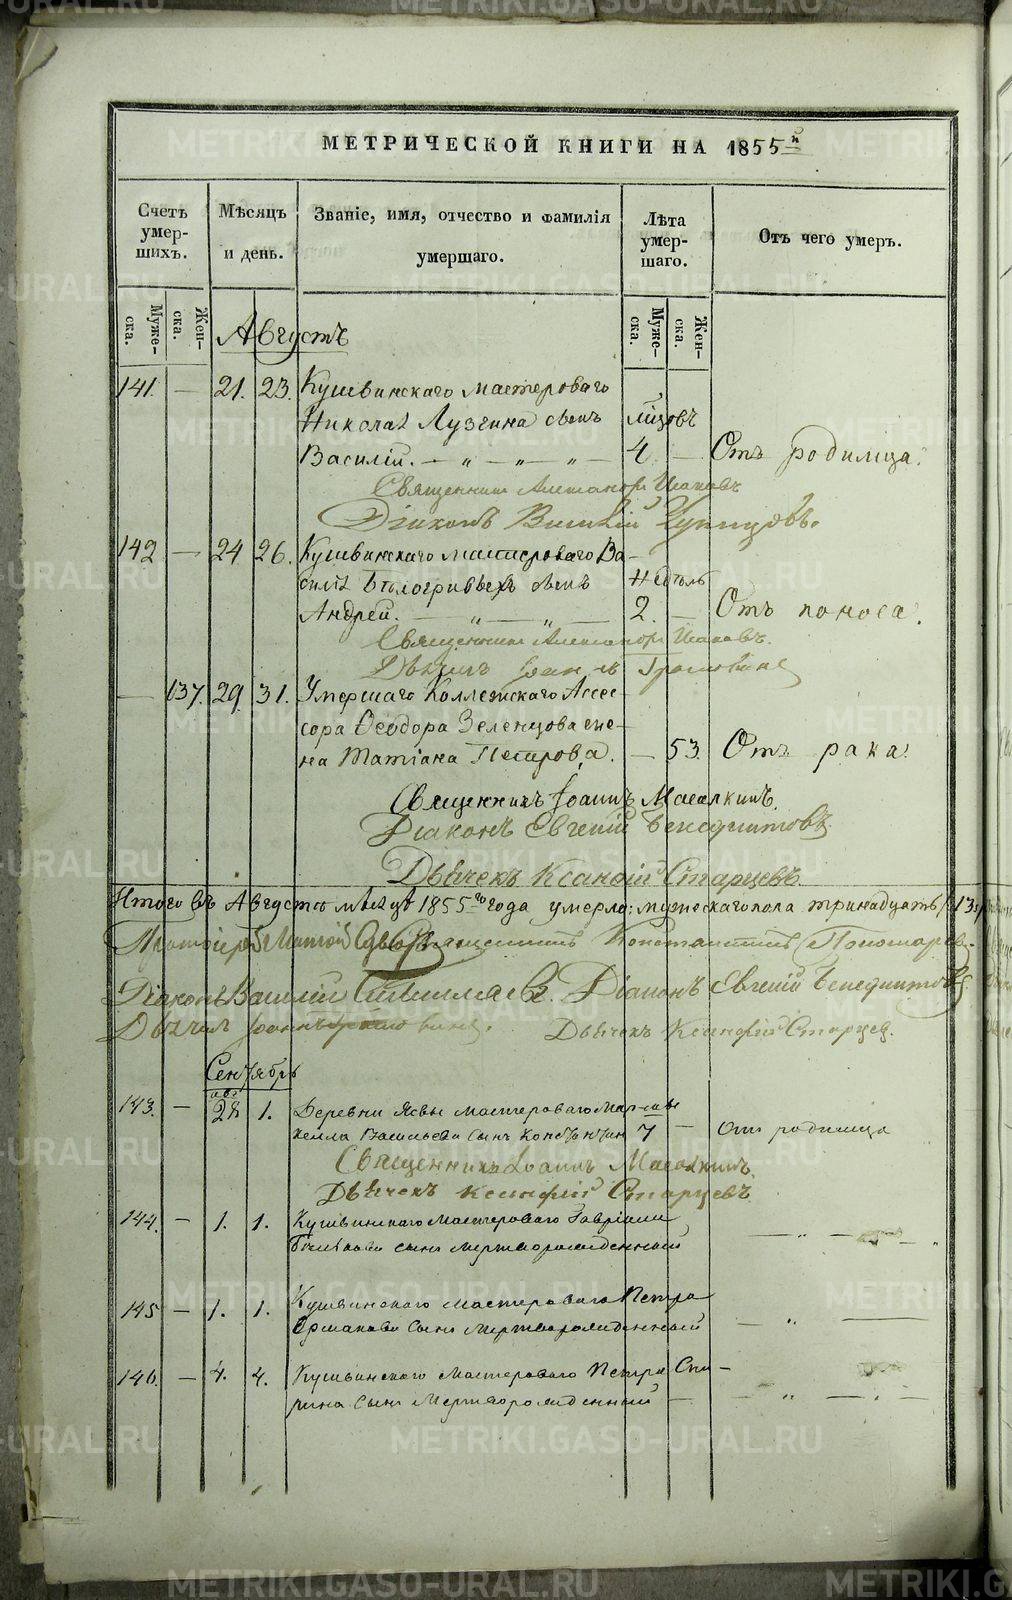 МЕТРИЧЕСКОЙ КНИГИ НА 1855й
Счетъ умер-шихъ.
Мѣсяцъ и день.
Званіе, имя, отчество и фамилія умершаго.
Лѣта умер-шаго.
Отъ чего умеръ.
Муже-ска.
Жен-ска.
Муже-ска.
Жен-ска.
Августъ
141. — 21. 23. Кушвинскаго мастероваго
Николая Лузгина сынъ мѣсяцовъ
Василій. — „ — „ — „ — 4 — Отъ родимца.
Священникъ Александръ
Діаконъ Василій
142 — 24 26. Кушвинскаго мастероваго Ва-
силія Бѣлогривыхъ сынъ недѣль
Андрей. — „ — „ — 2. — Отъ поноса.
Священникъ Александръ
Дьячекъ Іоаннъ
— 137. 29. 31. Умершаго Коллежскаго Ассес-
сора Ѳеодора Зеленцова же-
на Татіана Петрова. — 53. Отъ рака.
Священникъ Іоаннъ Масалкинъ.
Діаконъ Евгеній Бенедиктовъ
Дьячекъ Ксанфій Старцевъ
Итого въ Августѣ мѣсяцѣ 1855го года умерло: мужескаго пола тринадцать (13)
Протоіерей Священникъ Константинъ Пономарев
Діаконъ Василій Діаконъ Евгеній Бенедиктовъ
Дьячекъ Іоаннъ Дьячекъ Ксанфій Старцев.
Сентябрь
авг
143. — 28 1. Деревни мастероваго
Васильева сынъ Константин 7 — Отъ родимца
Священникъ Іоаннъ Масалкинъ.
Дьячекъ Ксанфій Старцевъ
144. — 1. 1. Кушвинскаго мастероваго Гавріила
сынъ мертворожденный — „ — „
145 — 1. 1. Кушвинскаго мастероваго Петра
Ермакова сынъ мертворожденный — „ —
146. — 4. 4. Кушвинскаго мастероваго Петра Спи-
рина сынъ мертворожденный — — „ — . —
METRIKI.GASO-URAL.RU